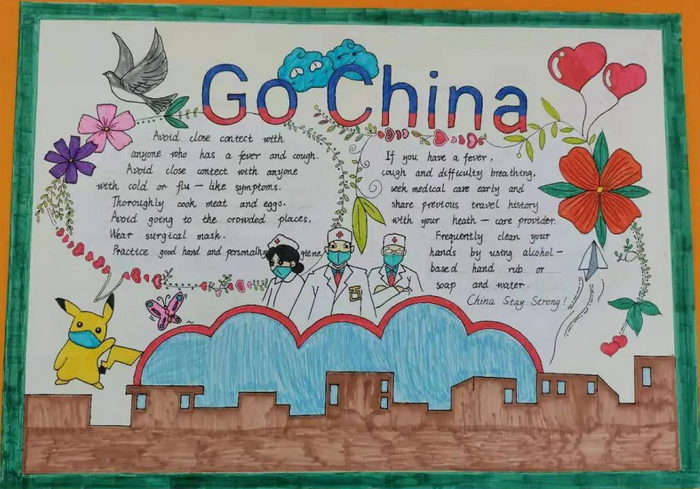 Go China
Avoid close contect with
anyone who has a fever and cough.
Avoid close contect with anyone
with cold or flu - like symptoms.
Thoroughly cook meat and eggs.
Avoid going to the crowded places.
Wear surgical mask.
Practice good hand and personalhy giene,
If you have a fever,
cough and difficulty breathing,
seek medical care early and
share previous travel history
with your heath - care provider.
Frequently clean your
hands by using alcohol -
based hand rub or
soap and water.
China Stay Strong!